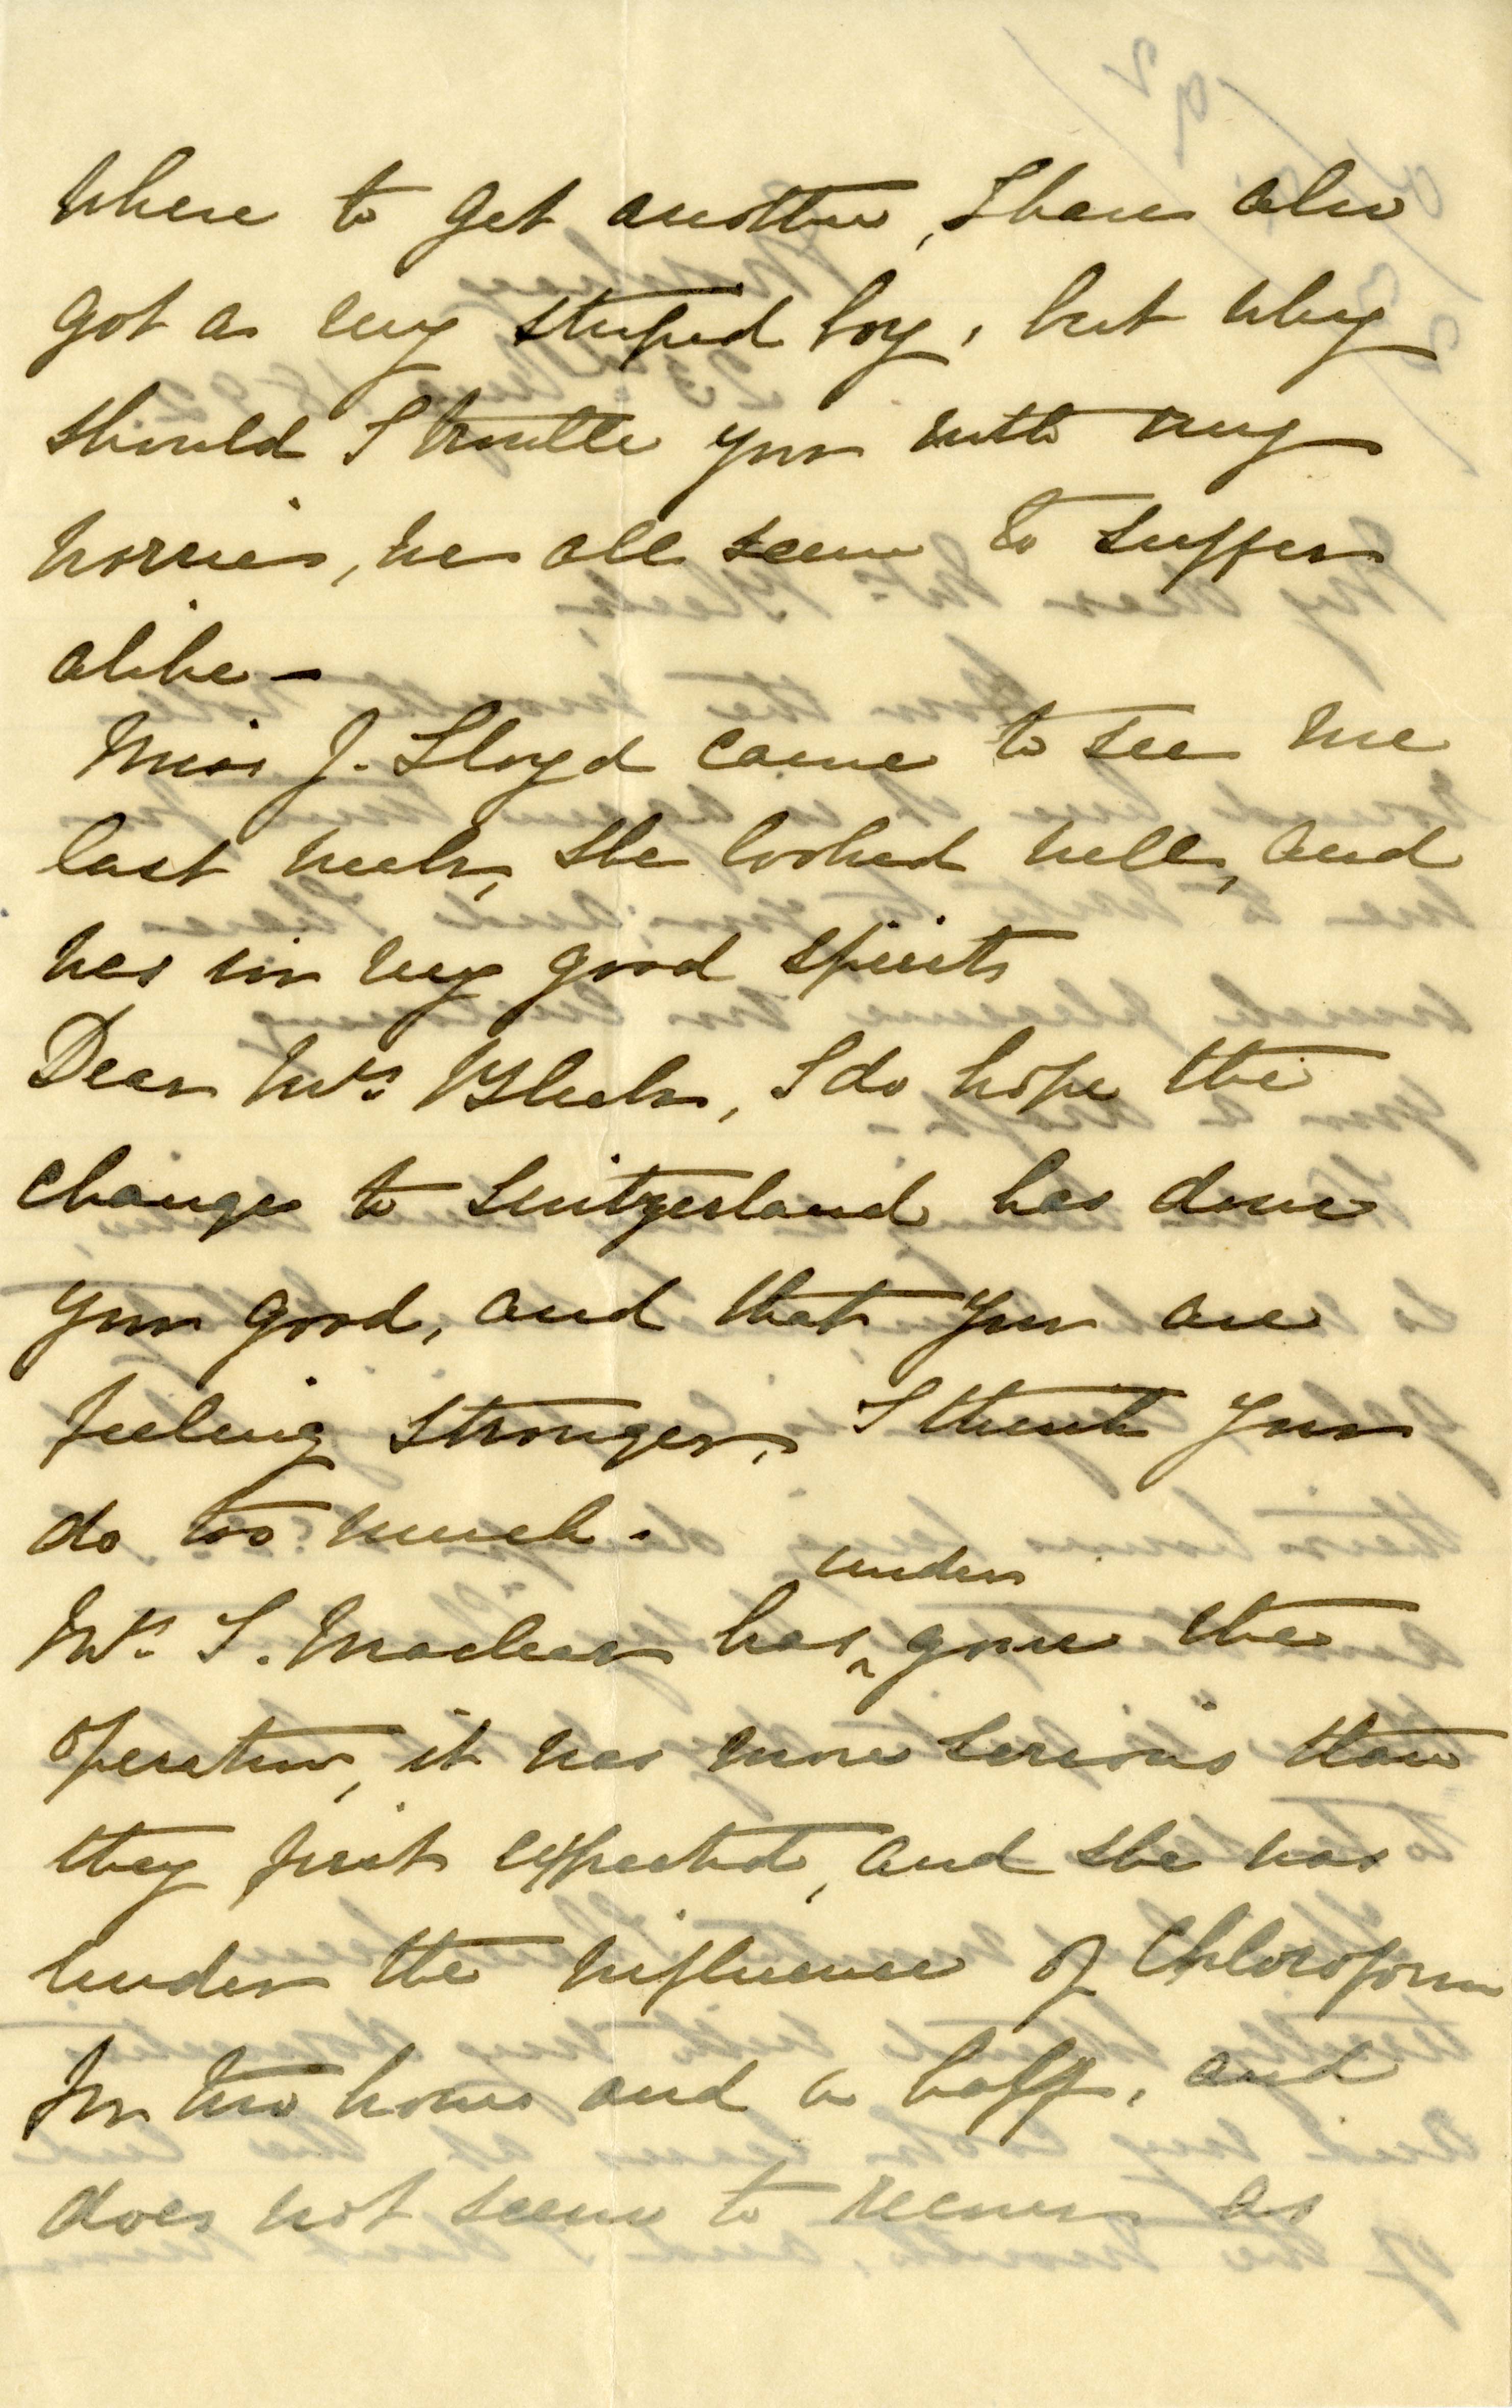 where to get another, I have also
got a very stupid boy, but why
should I trouble you with my
worries, we all seem to suffer
alike –
Miss J. Lloyd came to see me
last week, she looked well, and
was in very good spirits
Dear Mrs Bleek, I do hope the
change to Switzerland has done
you good, and that you are
feeling stronger, I think you
do too much.
under
Mrs T. Maclear has ^ gone the
operation, it was more serious than
they first expected, and she was
under the influence of Chloroform
for two hours and a half, and
does not seem to recover as